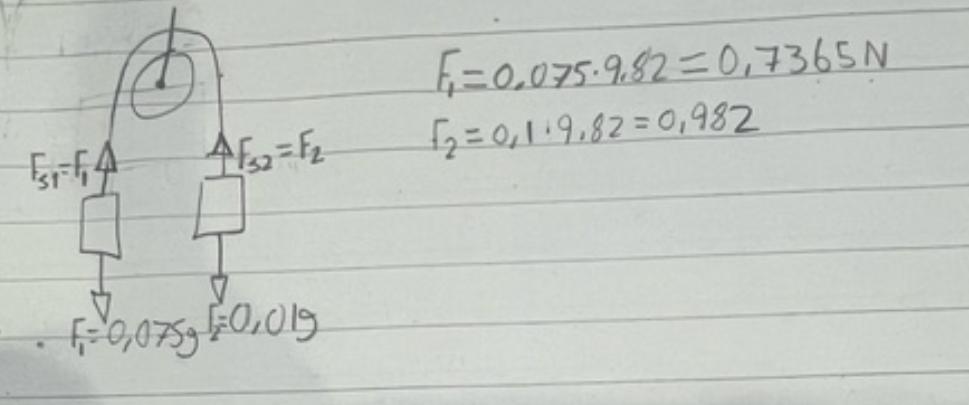 F₁=0.075·9.82=0,7365N
F₂=0,1·9.82=0,982
Fs1=F₁
Fs2=F₂
F₁=0,075g F₂=0,01g